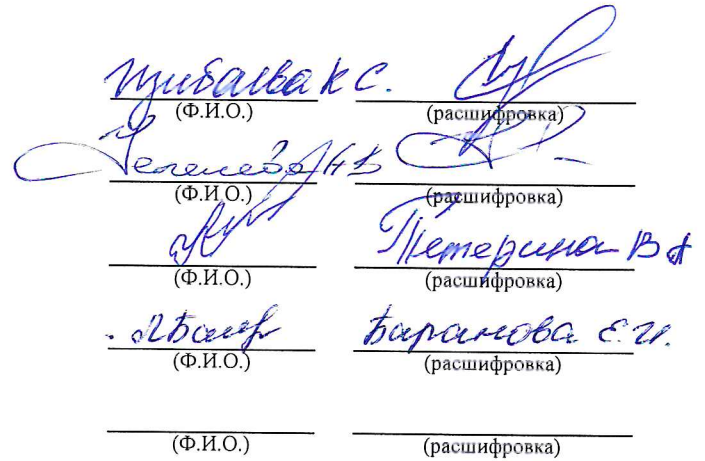 Щибаева К С.
(Ф.И.О.) (расшифровка)
(Ф.И.О.) (расшифровка)
Тетерина В А
(Ф.И.О.) (расшифровка)
Баранова Е.И.
(Ф.И.О.) (расшифровка)
(Ф.И.О.) (расшифровка)